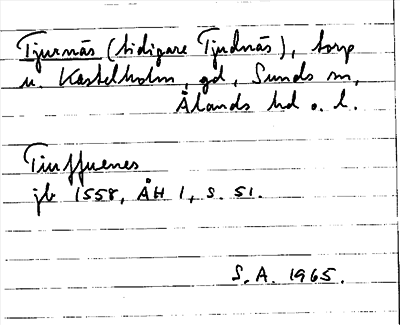 Tjurnäs (tidigare Tjudnäs), torp
u. Kastelholm, gd, Sunds sn,
Ålands hd o. l.
Tiuffuenes
jb 1558, ÅH 1, s. 51.
S. A. 1965.